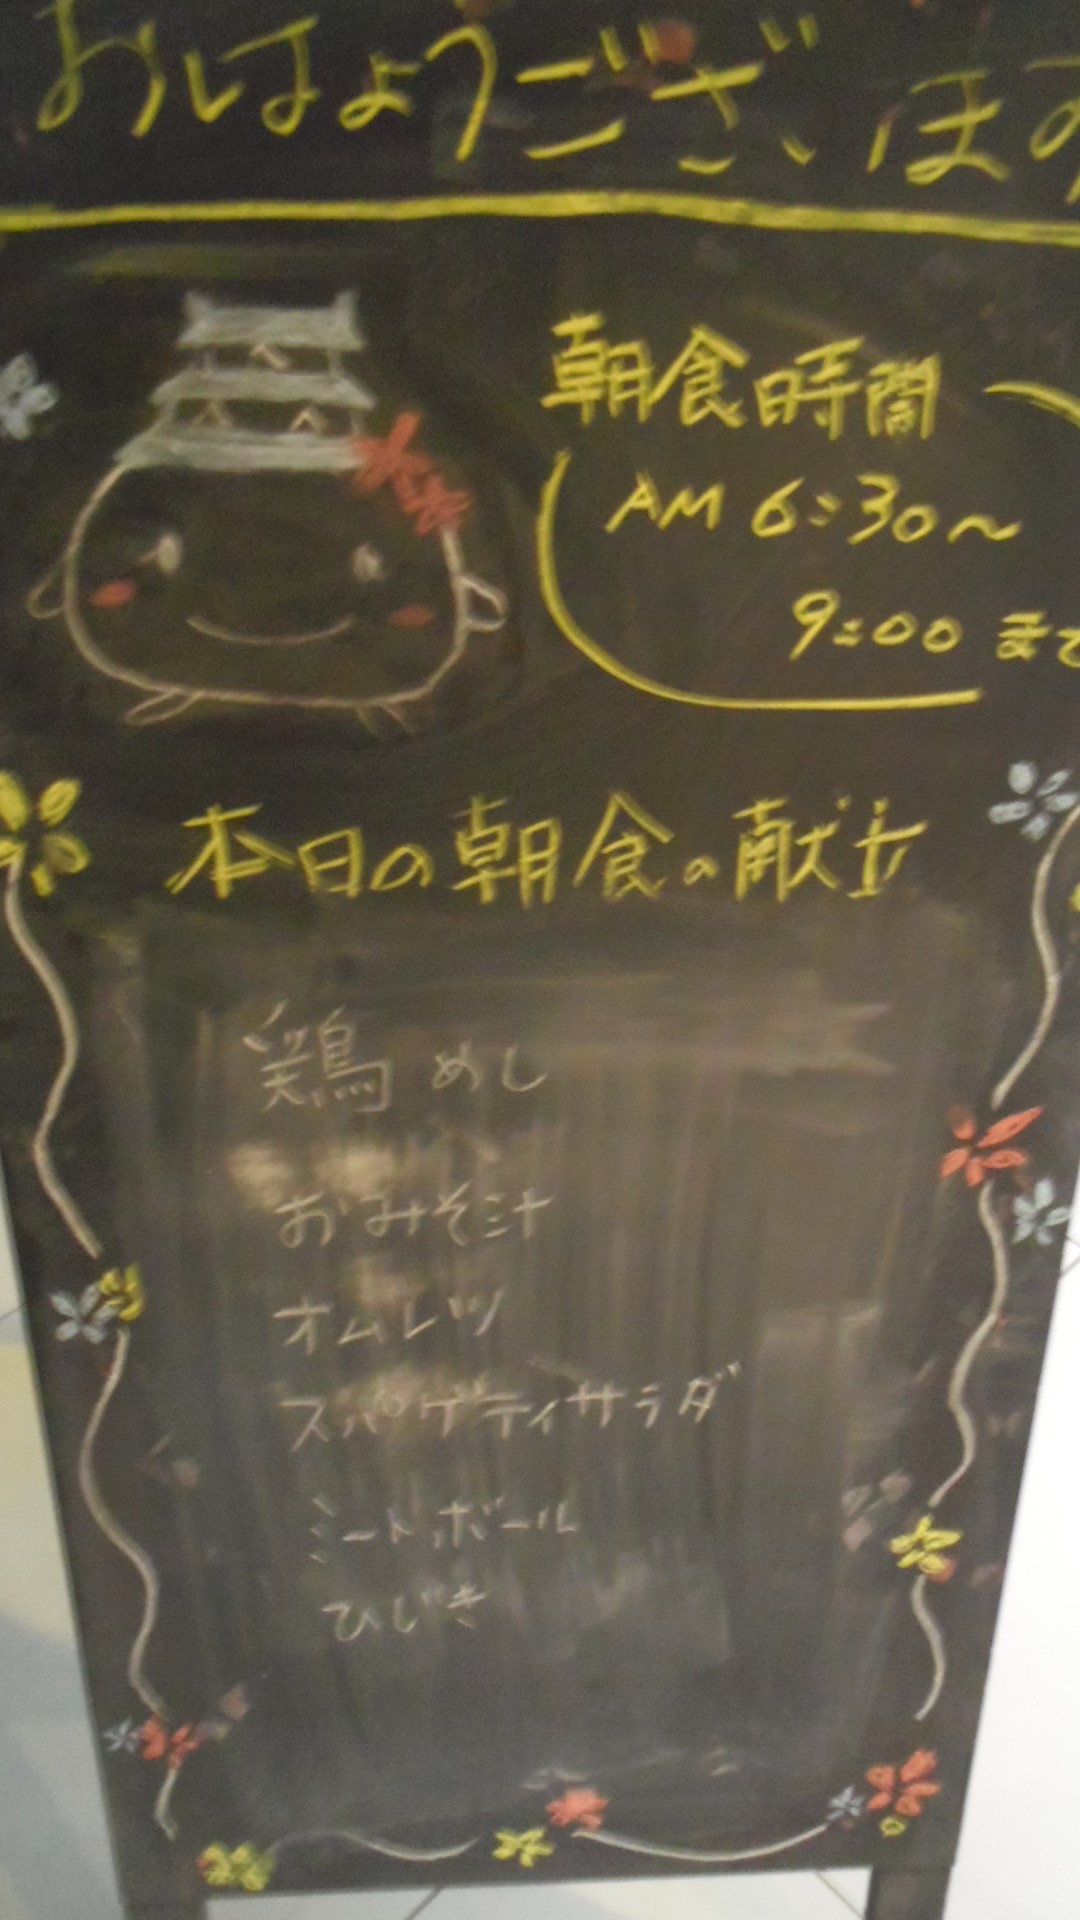 おはようございます
朝食時間
AM 6:30～
9:00 まで
本日の朝食の献立
鶏めし
おみそ汁
オムレツ
スパゲティサラダ
ミートボール
ひじき